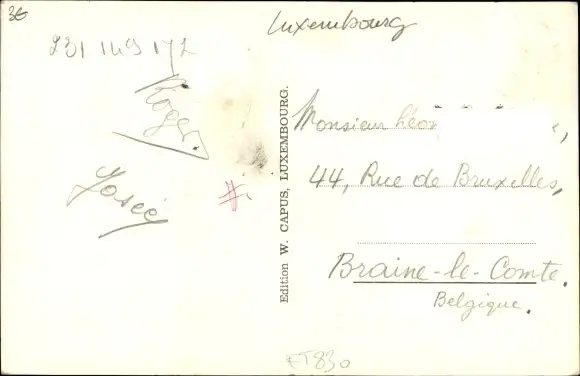 36
Luxembourg
231 149 172
Roger.
Josée
#.
Edition W. CAPUS, LUXEMBOURG.
Monsieur Léon
44, Rue de Bruxelles,
Braine-le-Comte.
Belgique.
ET830